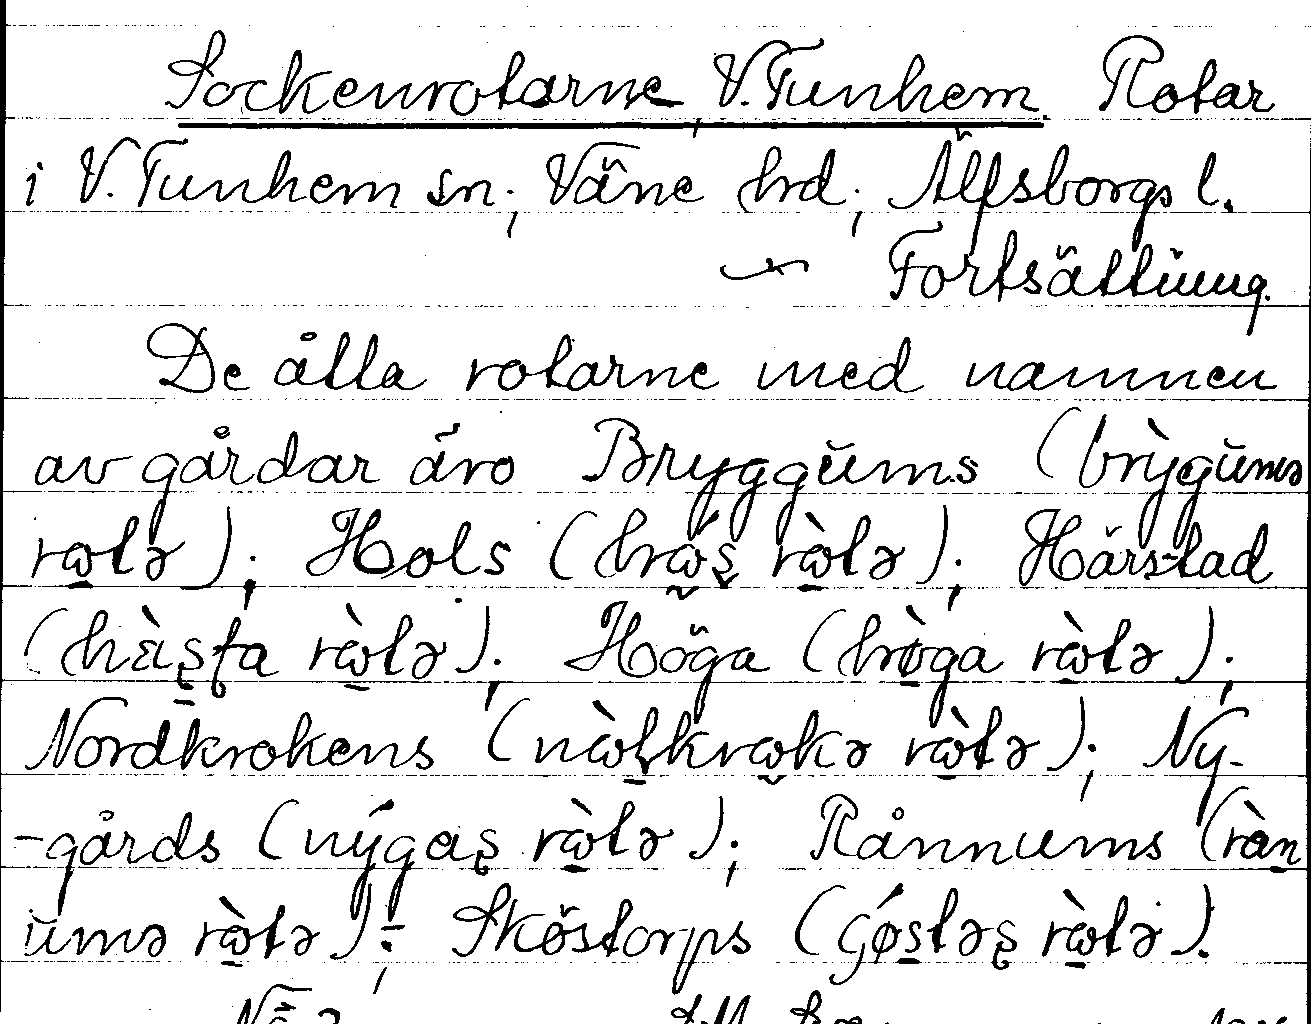 Sockenrotarne, V. Tunhem. Rotar
i V. Tunhem sn; Väne hrd; Älfsborgs l.
Fortsättning.
De åtta rotarne med namnen
av gårdar äro Bryggŭms (brỳgŭmsə
rωtə); Hols (hωś rὼtə); Härstad
(hɛ̀ʂʈa rὼtə); Höga (hø̀ga rὼtə);
Nordkrokens (nὼɽkrωkə rὼtə); Ny-
-gårds (nýgaʂ rὼtə); Rånnums (ràn
ŭmə rὼtə); Sköstorps (ʃǿstəʂ rὼtə).